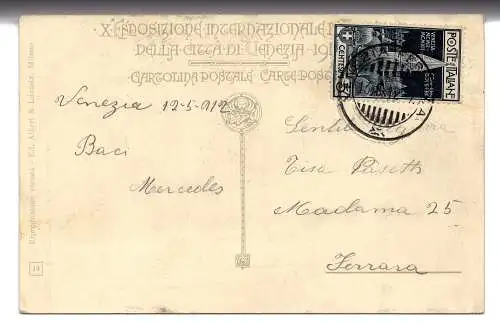 X ESPOSIZIONE INTERNAZIONALE
DELLA CITTÀ DI VENEZIA 191
CARTOLINA POSTALE CARTE POST
POSTE ITALIANE
CENTESIMI 5
Venezia 12-5-912
Baci
Mercedes
Tisa Pasetti
Madama 25
Ferrara
Riproduzione vietata - Ed. Alfieri & Lacroix, Milano